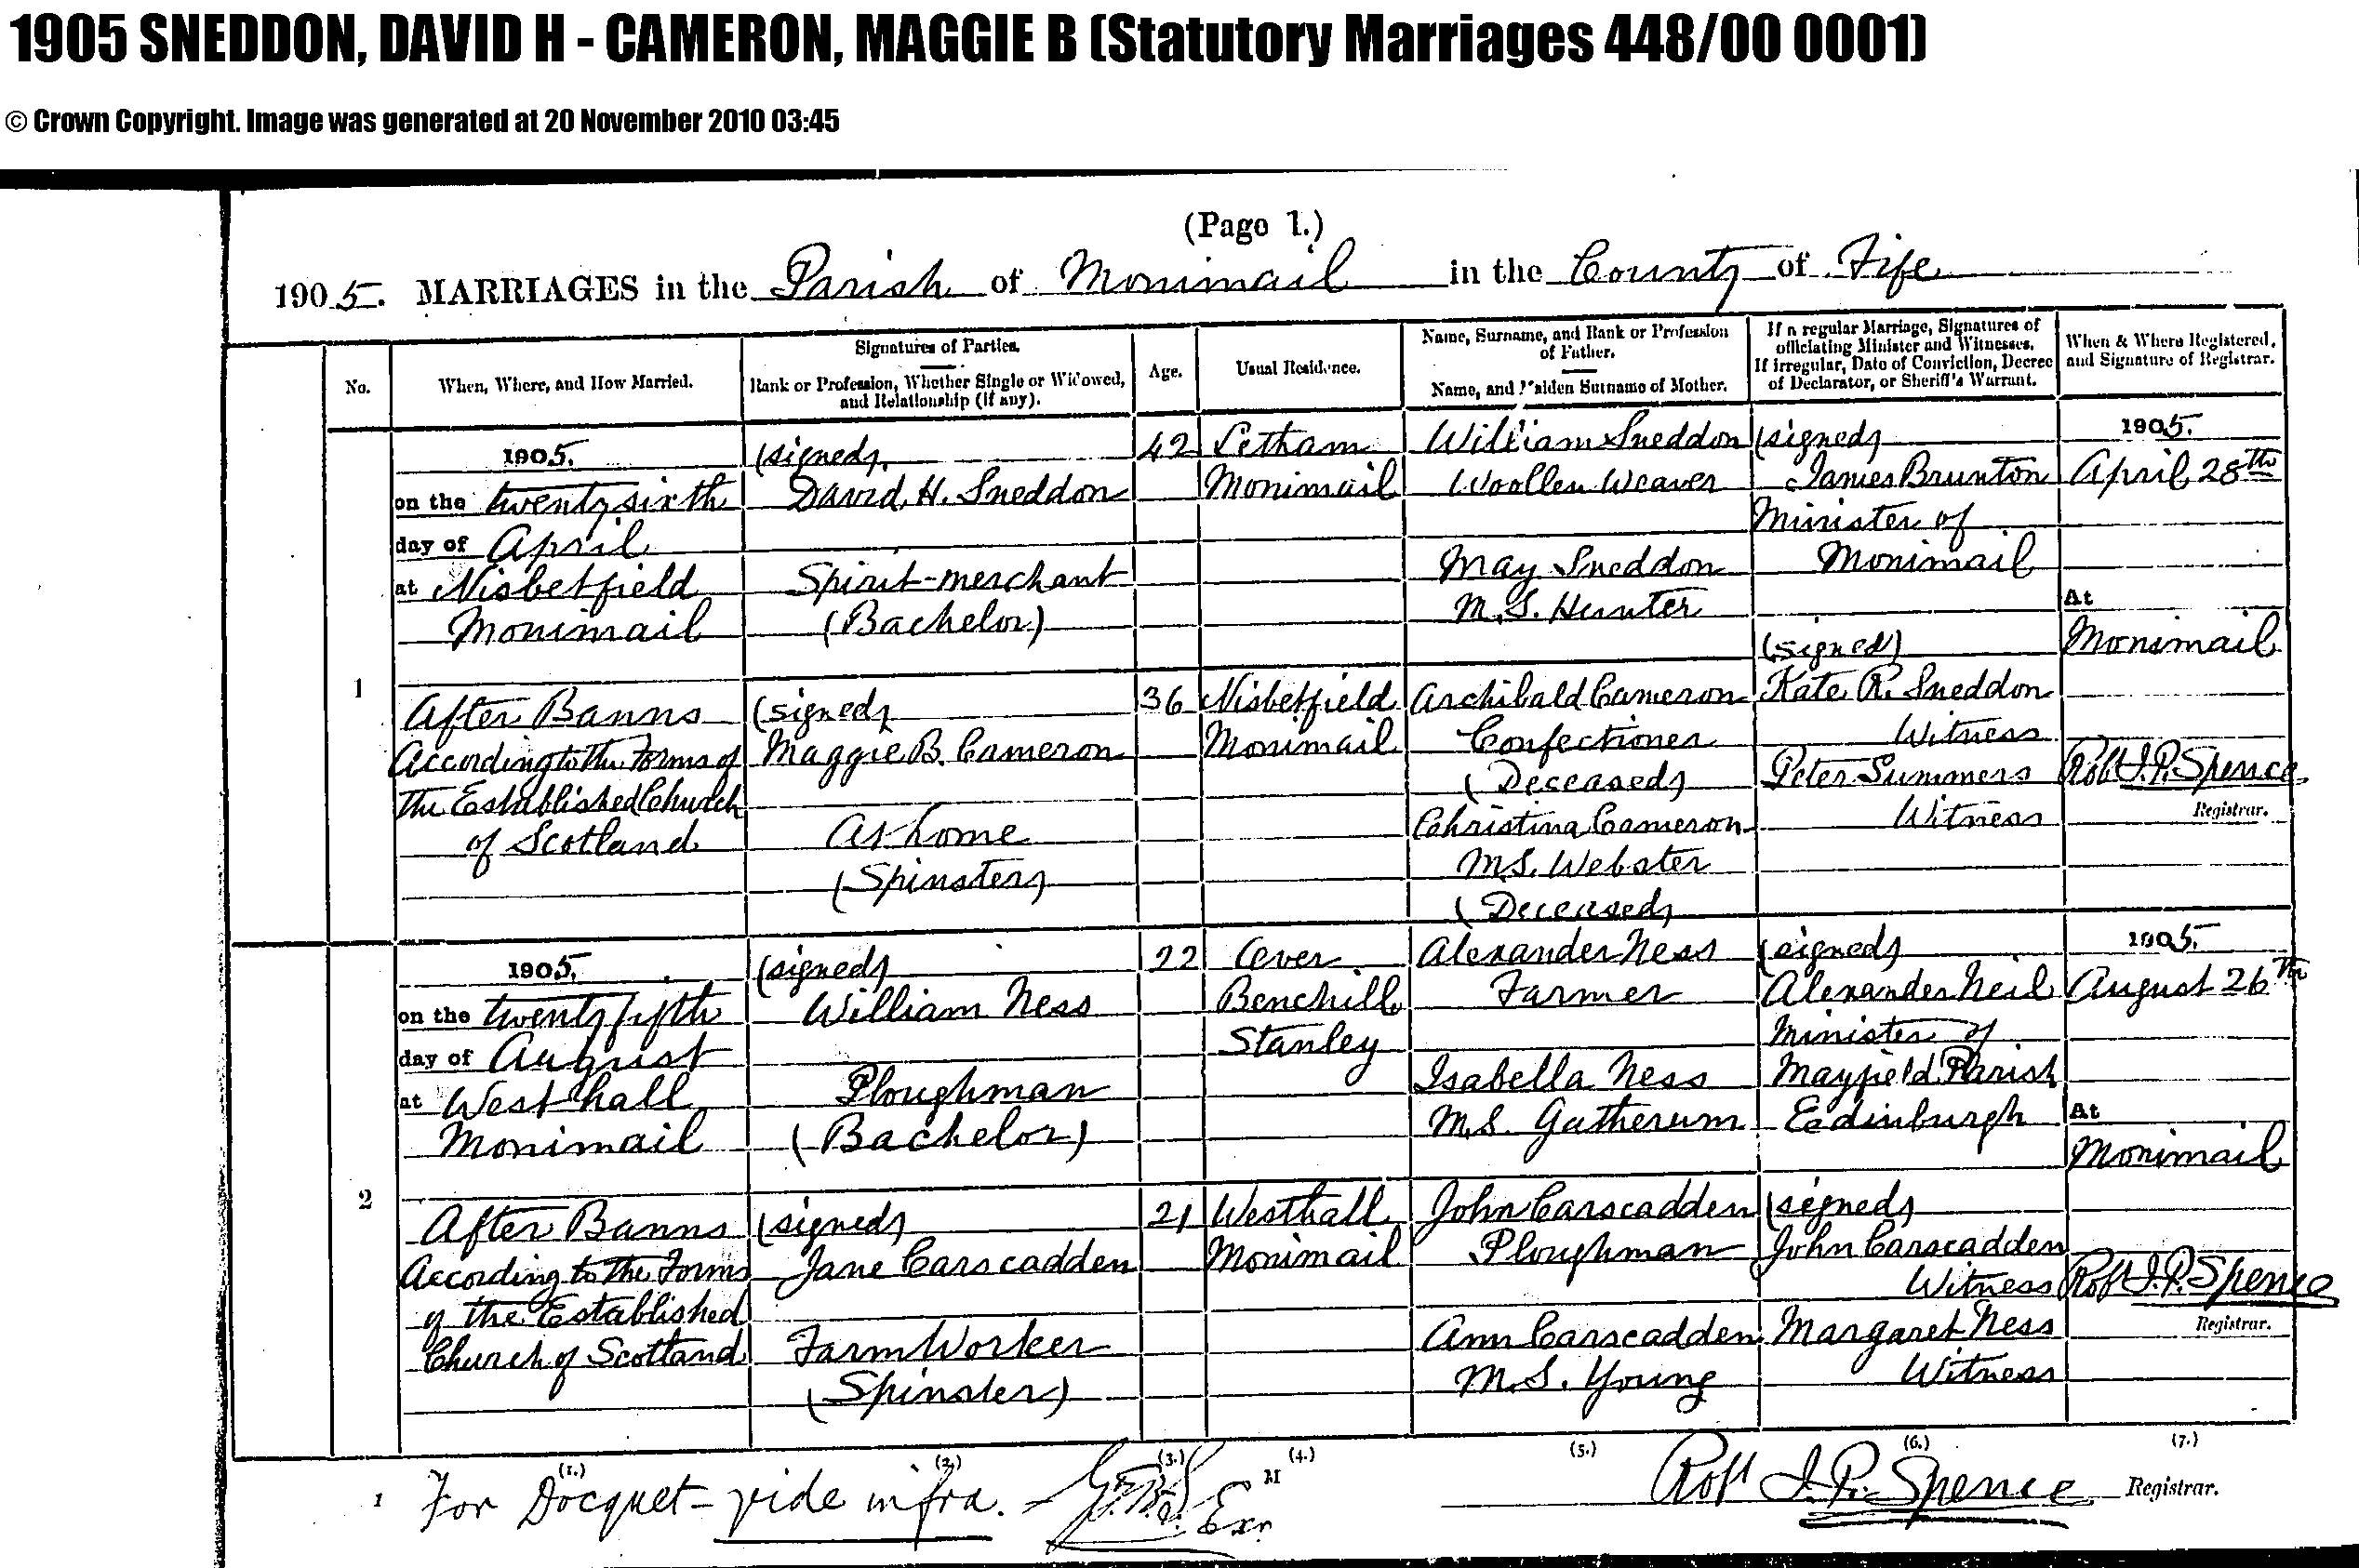 1905 SNEDDON, DAVID H - CAMERON, MAGGIE B (Statutory Marriages 448/00 0001)
© Crown Copyright. Image was generated at 20 November 2010 03:45
(Page 1.)
1905. MARRIAGES in the Parish of Monimail in the County of Fife
No.
When, Where, and How Married.
Signatures of Parties.
Rank or Profession, Whether Single or Widowed,
and Relationship (if any).
Age.
Usual Residence.
Name, Surname, and Rank or Profession
of Father.
Name, and Maiden Surname of Mother.
If a regular Marriage, Signatures of
officiating Minister and Witnesses.
If irregular, Date of Conviction, Decree
of Declarator, or Sheriff's Warrant.
When & Where Registered,
and Signature of Registrar.
1
1905.
on the twenty sixth
day of April
at Nisbetfield
Monimail
After Banns
According to the Forms of
the Established Church
of Scotland
(signed)
David H. Sneddon
Spirit-merchant
(Bachelor)
(signed)
Maggie B. Cameron
At home
(Spinster)
42
36
Letham
Monimail
Nisbetfield
Monimail
William Sneddon
Woollen Weaver
May Sneddon
M.S. Hunter
Archibald Cameron
Confectioner
(Deceased)
Christina Cameron
M.S. Webster
(Deceased)
(signed)
James Brunton
Minister of
Monimail
(signed)
Kate R. Sneddon
Witness
Peter Summers
Witness
1905.
April 28th
At
Monimail
Robt J.P. Spence
Registrar.
2
1905.
on the twenty fifth
day of August
at West hall
Monimail
After Banns
According to the Forms
of the Established
Church of Scotland
(signed)
William Ness
Ploughman
(Bachelor)
(signed)
Jane Carscadden
Farm Worker
(Spinster)
22
21
Over
Benchill
Stanley
Westhall
Monimail
Alexander Ness
Farmer
Isabella Ness
M.S. Gatherum
John Carscadden
Ploughman
Ann Carscadden
M.S. Young
(signed)
Alexander Neil
Minister of
Mayfield Parish
Edinburgh
(signed)
John Carscadden
Witness
Margaret Ness
Witness
1905.
August 26th
At
Monimail
Robt J.P. Spence
Registrar.
(1.) (2.) (3.) (4.) (5.) (6.) (7.)
1 For Docquet - vide infra. Exr M
Robt J.P. Spence Registrar.